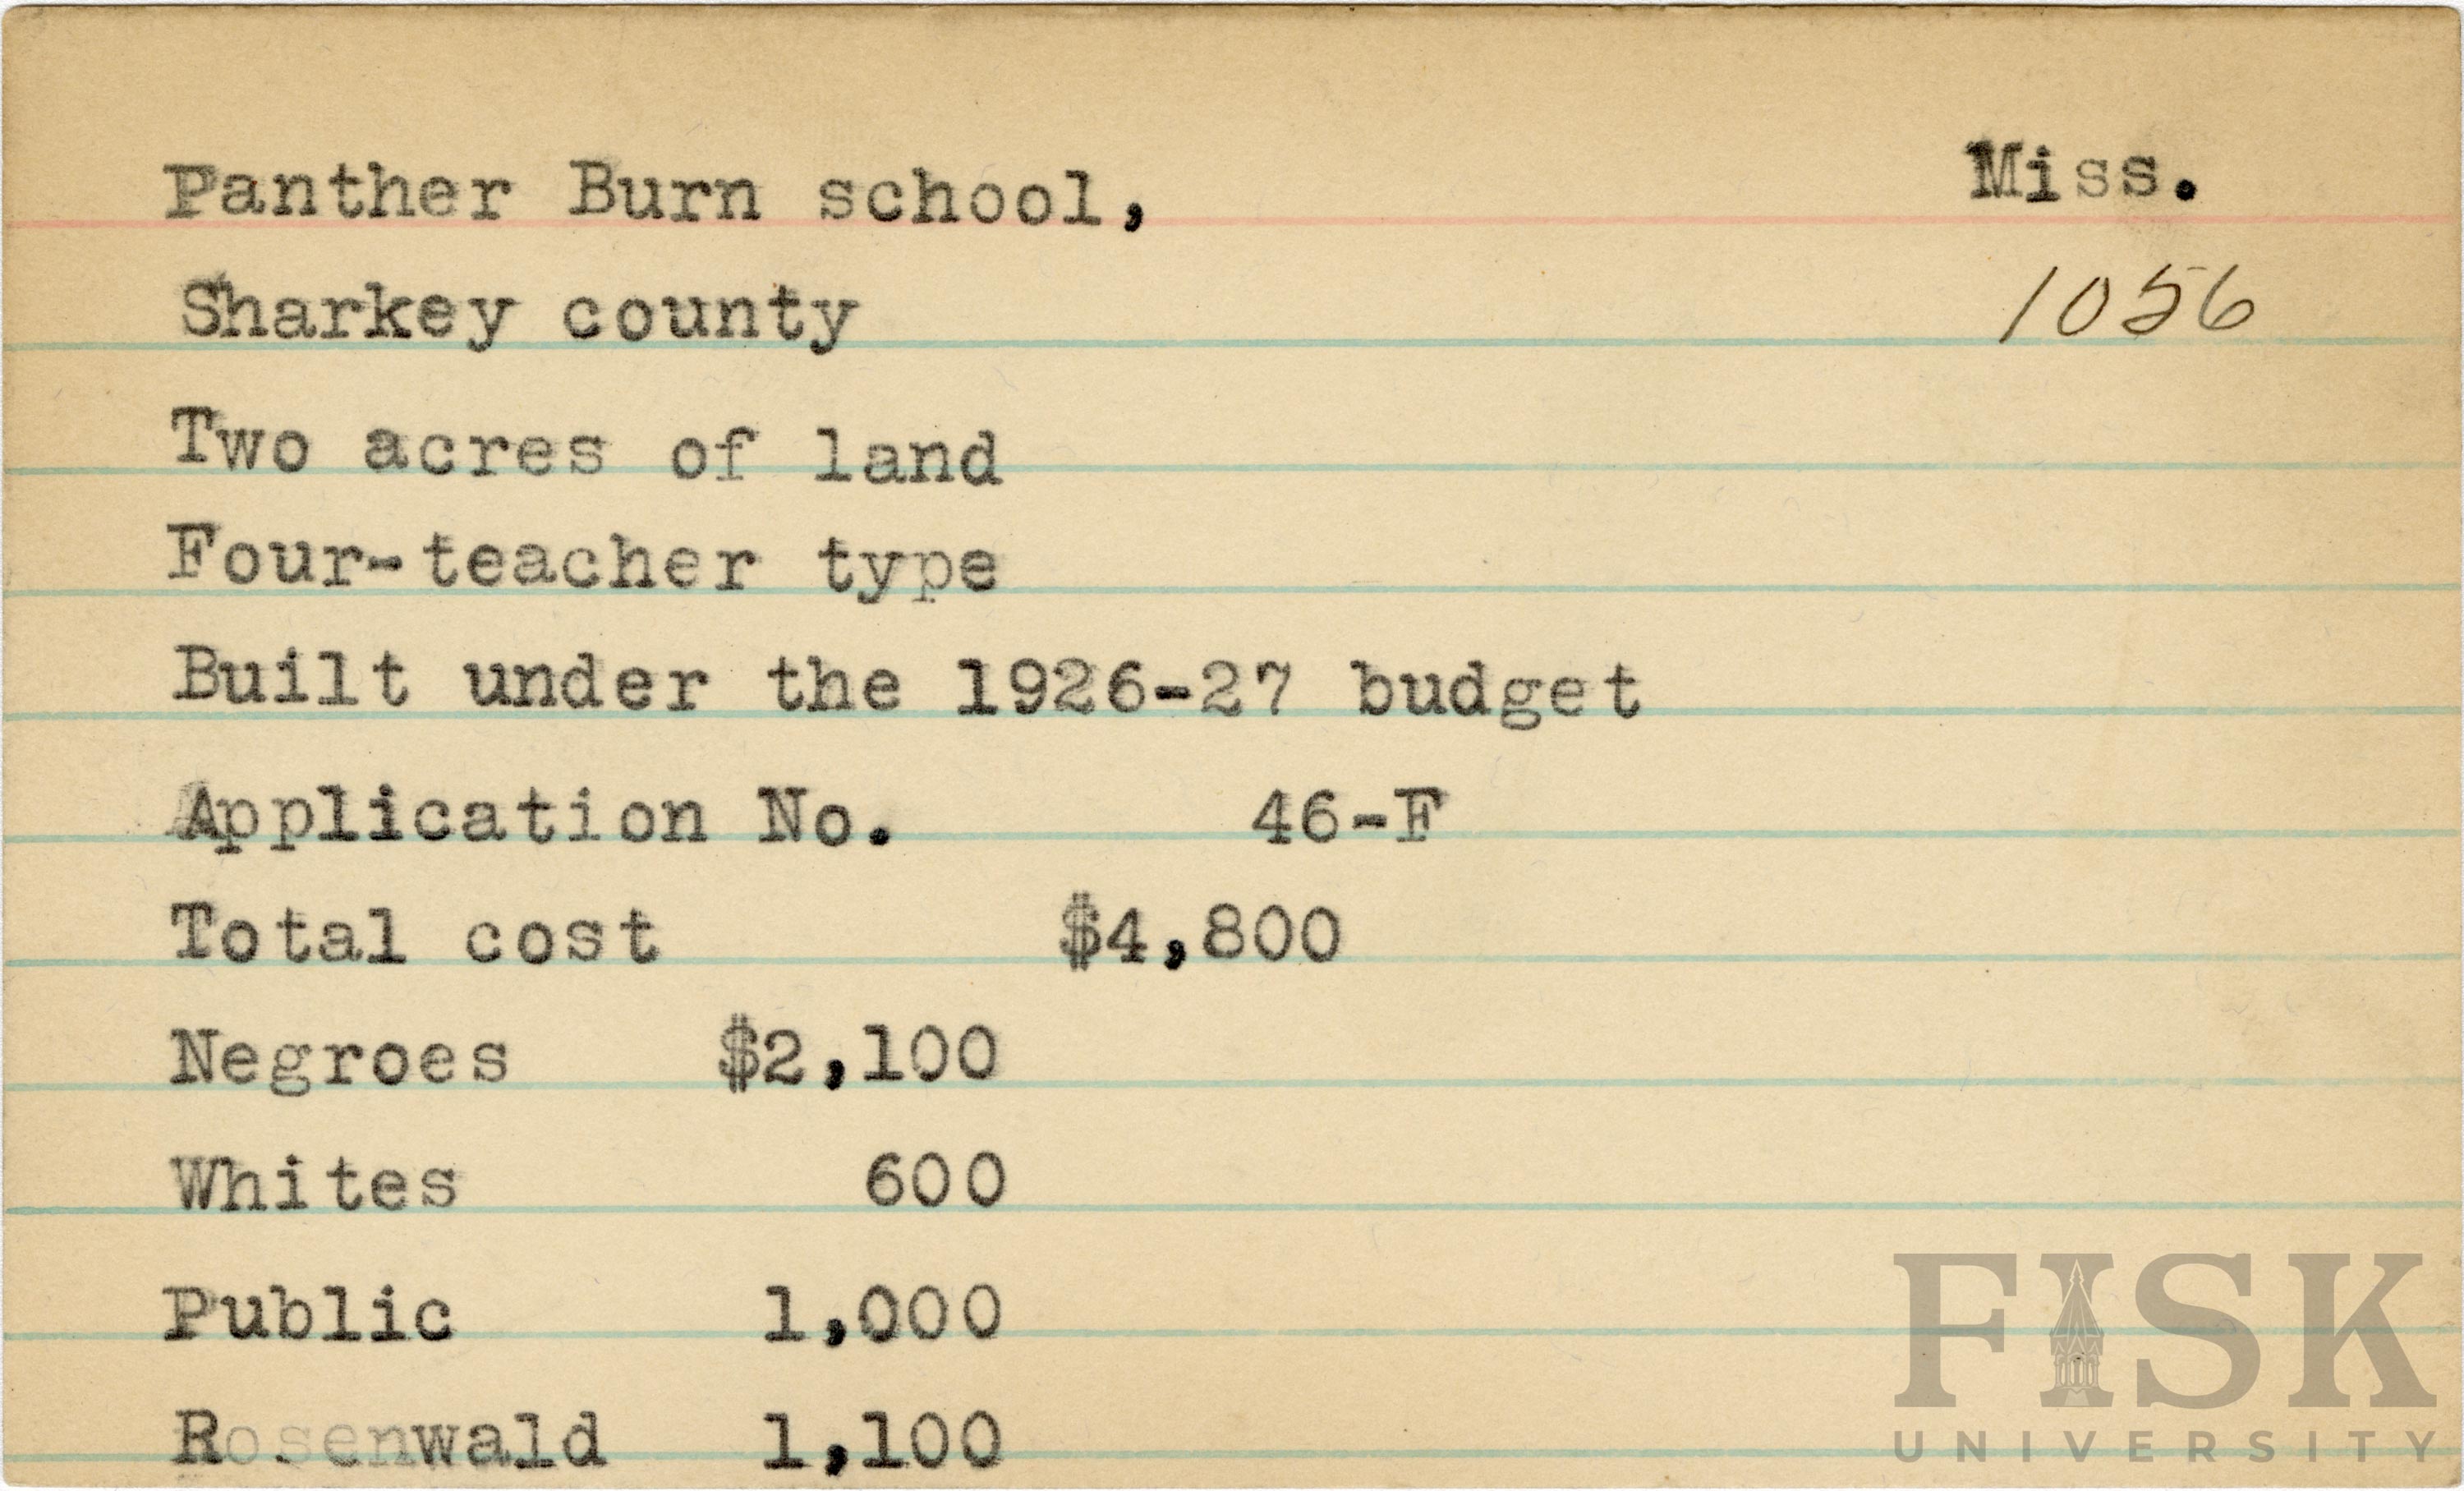 Panther Burn school, Miss.
Sharkey county 1056
Two acres of land
Four-teacher type
Built under the 1926-27 budget
Application No. 46-F
Total cost $4,800
Negroes $2,100
Whites 600
Public 1,000
Rosenwald 1,100
FISK
UNIVERSITY